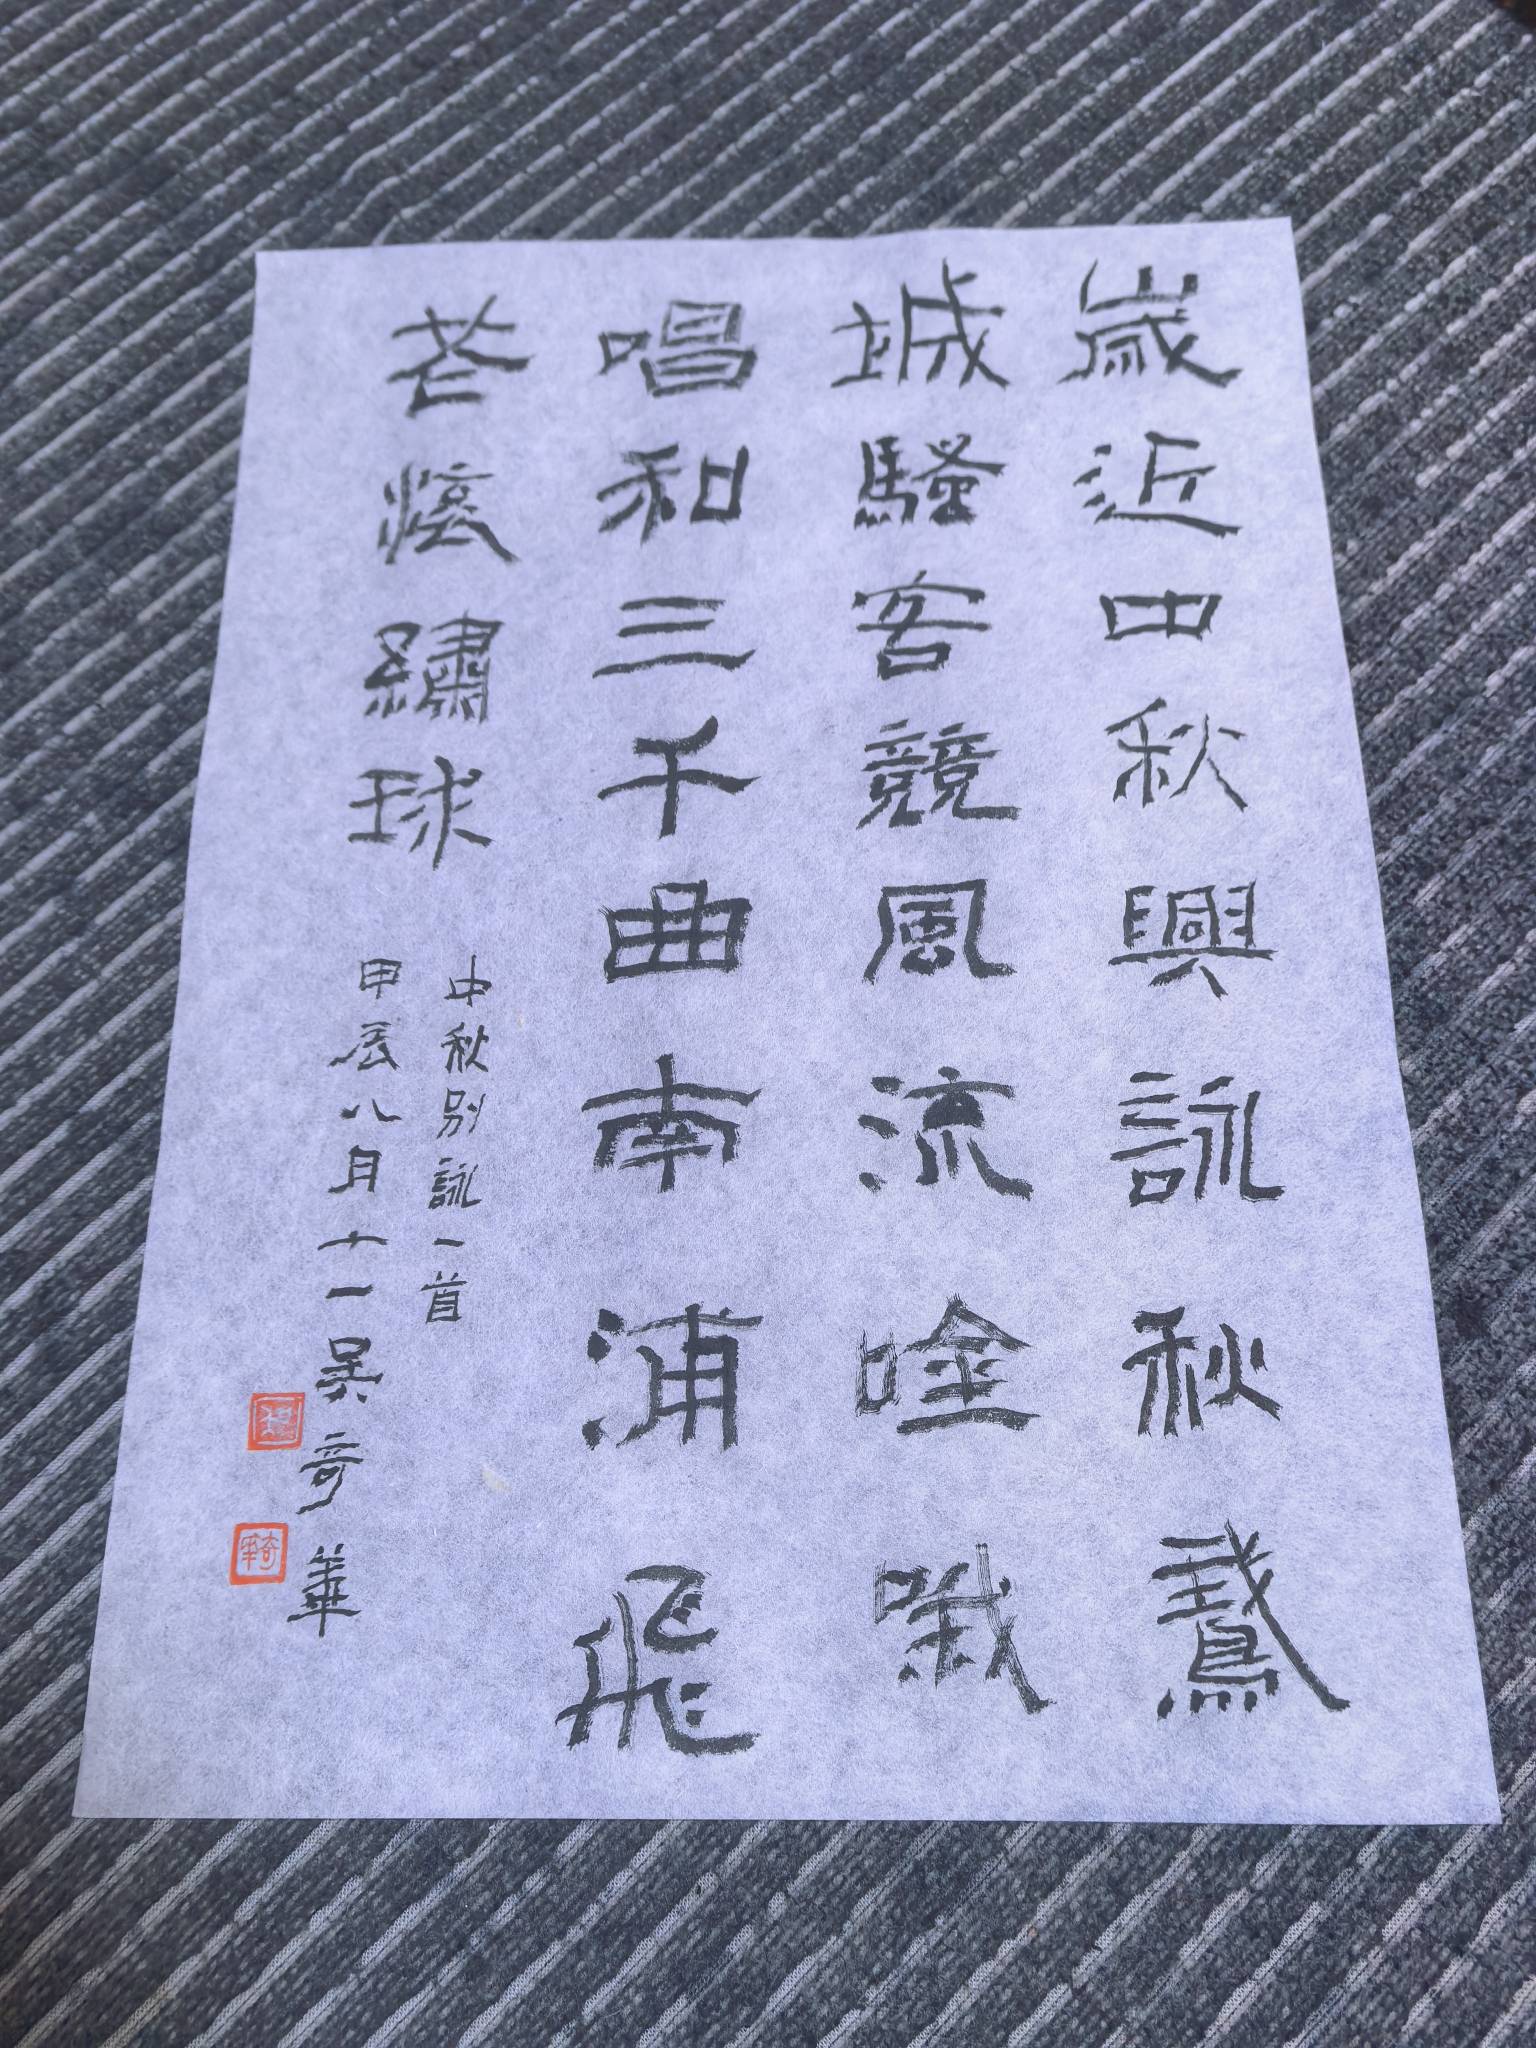 歲近中秋興詠秋鵞
城騷客競風流唫哦
唱和三千曲南浦飛
花炫繡球
中秋別詠一首
甲辰八月十一吴奇華
奇華